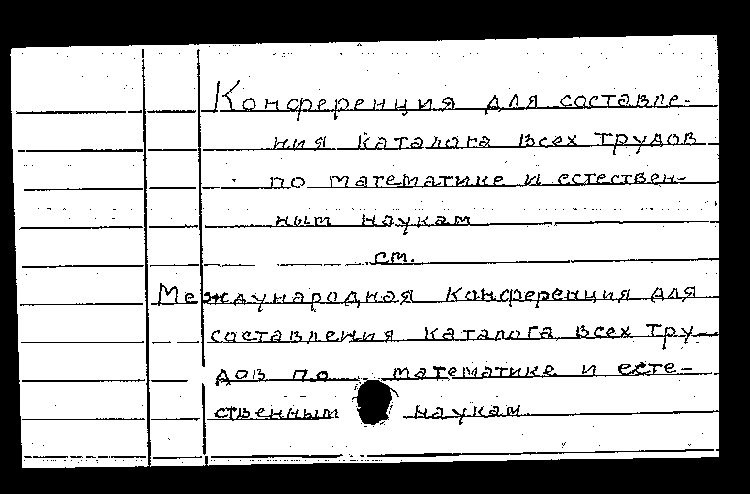 Конференция для составле-
ния каталога всех трудов
по математике и естествен-
ным наукам
см.
Международная конференция для
составления каталога всех тру-
дов по математике и есте-
ственным наукам